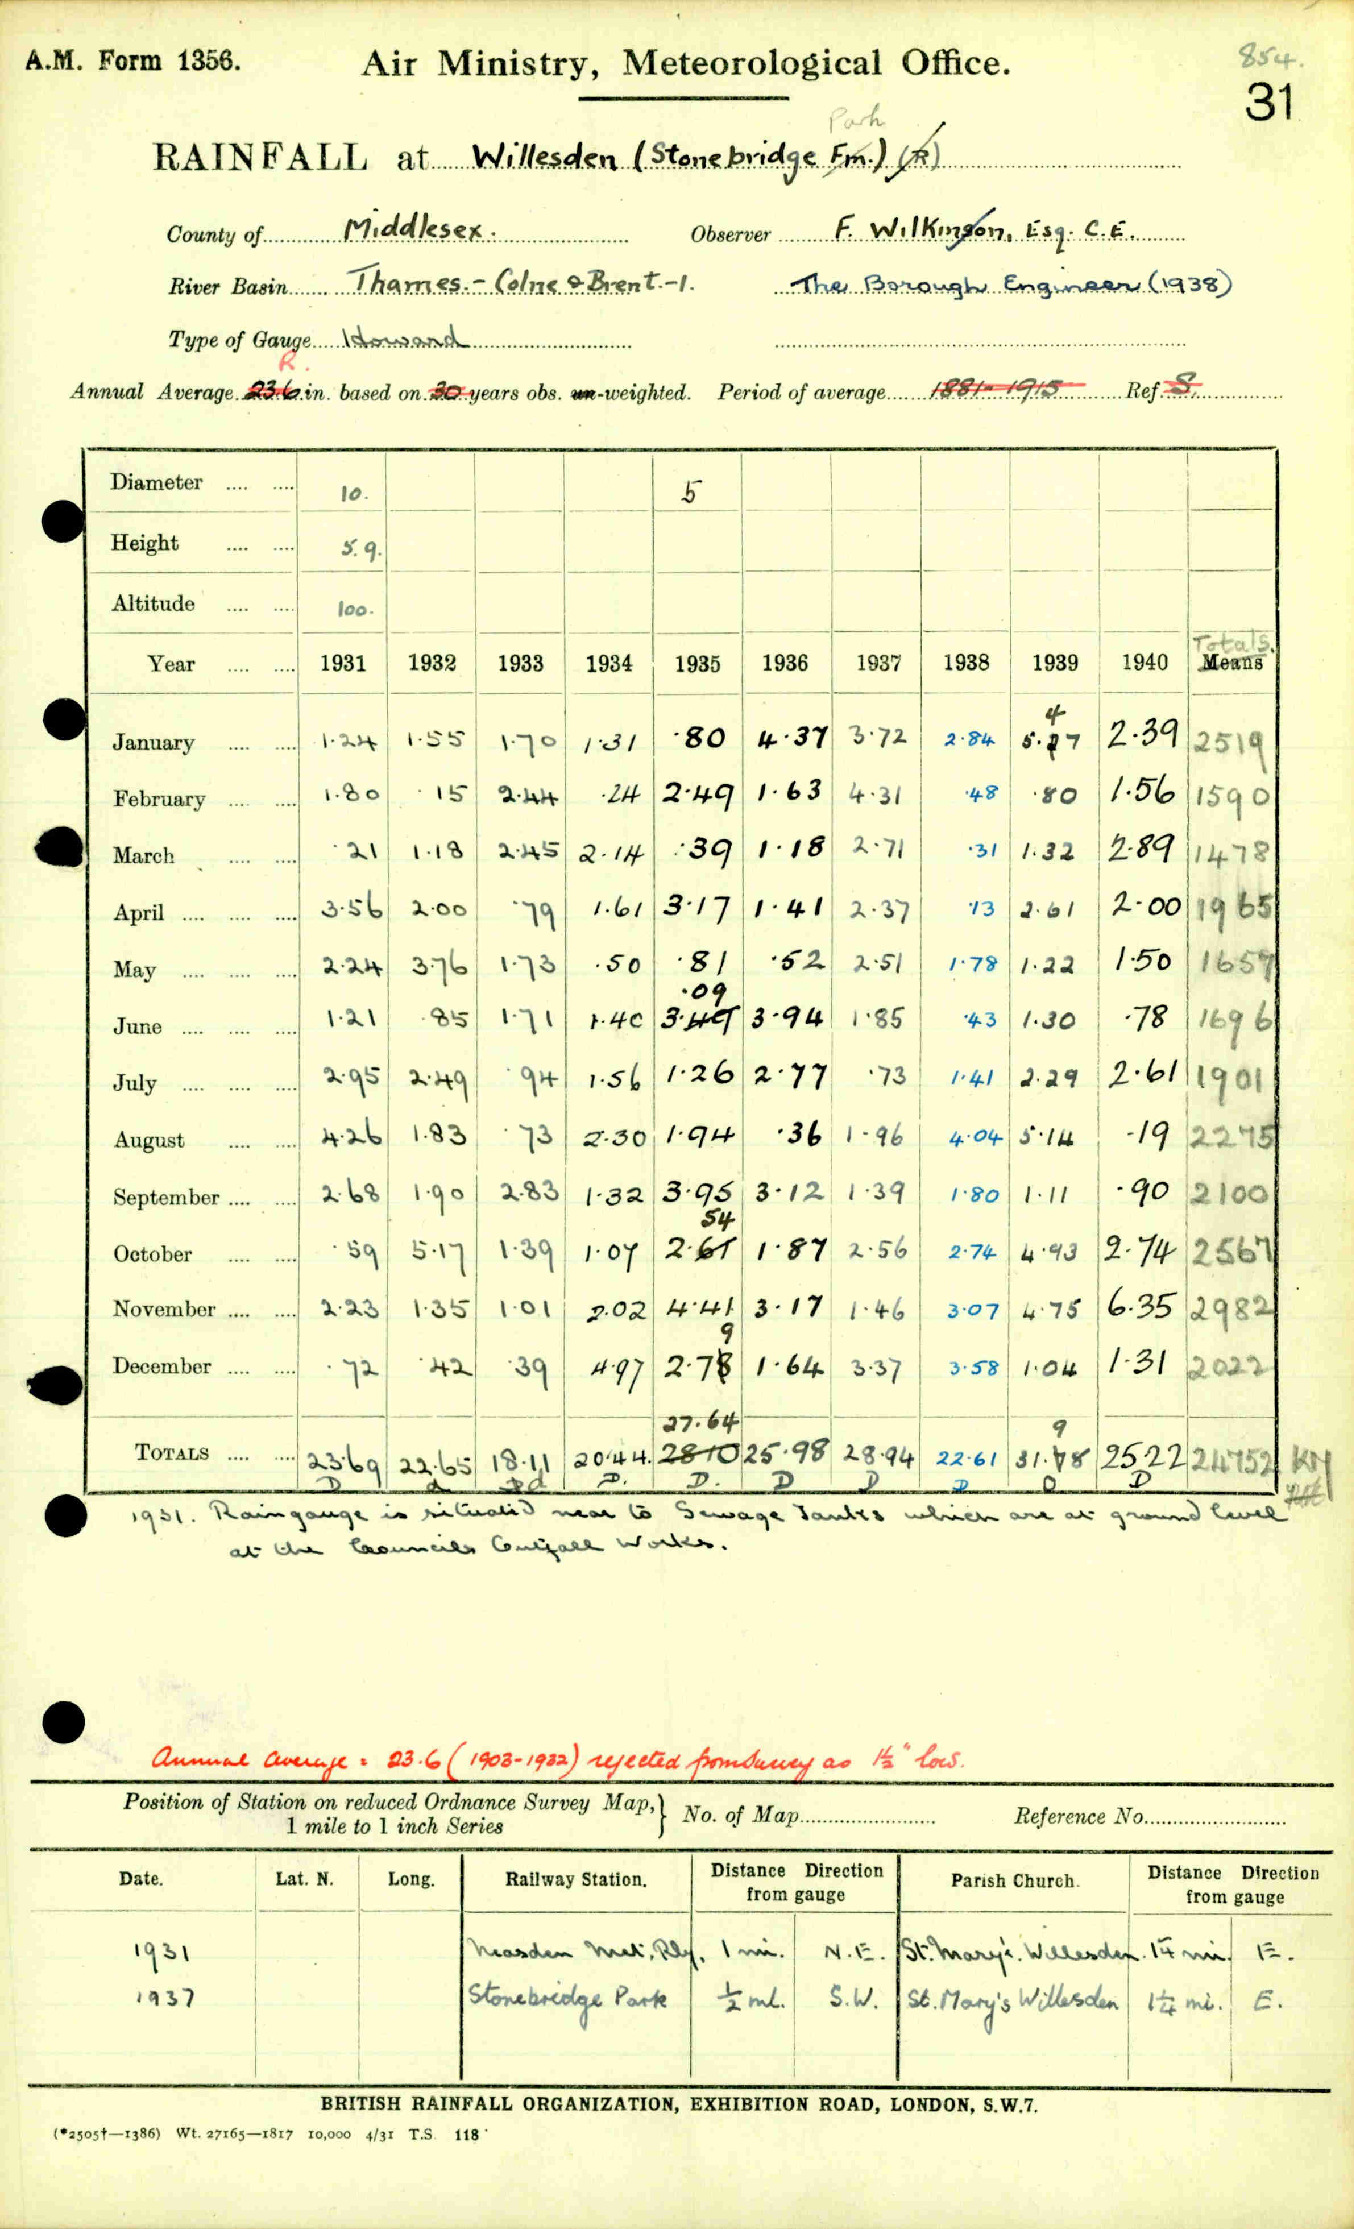 A.M. Form 1356.
Air Ministry, Meteorological Office.
854.
31
Park
RAINFALL at Willesden (Stonebridge Fm.) (R)
County of Middlesex. Observer F. Wilkinson, Esq. C.E.
River Basin Thames.- Colne & Brent.-1. The Borough Engineer (1938)
Type of Gauge Howard
R.
Annual Average 23.6 in. based on 30 years obs. un-weighted. Period of average 1881-1915 Ref. S.
Diameter .... .... 10. 5
Height .... .... 5.9.
Altitude .... .... 100.
Totals.
Year .... .... 1931 1932 1933 1934 1935 1936 1937 1938 1939 1940 Means
4
January .... .... 1.24 1.55 1.70 1.31 .80 4.37 3.72 2.84 5.27 2.39 2519
February .... .... 1.80 .15 2.44 .24 2.49 1.63 4.31 .48 .80 1.56 1590
March .... .... .21 1.18 2.45 2.14 .39 1.18 2.71 .31 1.32 2.89 1478
April .... .... .... 3.56 2.00 .79 1.61 3.17 1.41 2.37 .13 2.61 2.00 1965
May .... .... .... 2.24 3.76 1.73 .50 .81 .52 2.51 1.78 1.22 1.50 1657
.09
June .... .... .... 1.21 .85 1.71 1.40 3.49 3.94 1.85 .43 1.30 .78 1696
July .... .... .... 2.95 2.49 .94 1.56 1.26 2.77 .73 1.41 2.29 2.61 1901
August .... .... 4.26 1.83 .73 2.30 1.94 .36 1.96 4.04 5.14 .19 2275
September .... .... 2.68 1.90 2.83 1.32 3.95 3.12 1.39 1.80 1.11 .90 2100
54
October .... .... .59 5.17 1.39 1.07 2.61 1.87 2.56 2.74 4.93 2.74 2567
November .... .... 2.23 1.35 1.01 2.02 4.41 3.17 1.46 3.07 4.75 6.35 2982
9
December .... .... .72 .42 .39 4.97 2.78 1.64 3.37 3.58 1.04 1.31 2022
27.64 9
TOTALS .... .... 23.69 22.65 18.11 20.44. 28.10 25.98 28.94 22.61 31.78 25.22 24752 KM
D d D. D. D D D D D
1931. Raingauge is situated near to Sewage Tanks which are at ground level
at the Councils Outfall Works.
Annual Average = 23.6 (1903-1932) rejected from Survey as 1½" low.
Position of Station on reduced Ordnance Survey Map,} No. of Map Reference No.
1 mile to 1 inch Series
Date. Lat. N. Long. Railway Station. Distance Direction from gauge Parish Church. Distance Direction from gauge
1931 Neasden Met. Rly. 1 mi. N.E. St. Mary's. Willesden. 1¼ mi. E.
1937 Stonebridge Park ½ ml. S.W. St. Mary's Willesden 1¼ mi. E.
BRITISH RAINFALL ORGANIZATION, EXHIBITION ROAD, LONDON, S.W.7.
(*2505†—1386) Wt. 27165—1817 10,000 4/31 T.S. 118